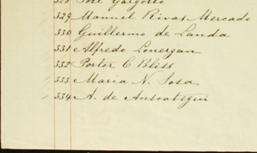 329 Manuel Rivas Mercado
330 Guillermo de Landa
331 Alfredo Lonergan
332 Porter C Bliss
333 Maria N. Sosa
334 A. de Ansoategui